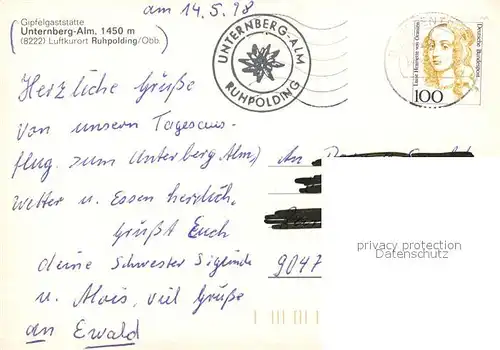 am 14.5.98
Gipfelgaststätte
Unternberg-Alm, 1450 m
(8222) Luftkurort Ruhpolding/Obb.
UNTERNBERG-ALM
RUHPOLDING
Deutsche Bundespost
100
Herzliche Grüße
von unserm Tagesaus-
flug zum Unterberg Alm,
wetter u. Essen herrlich,
Grüßt Euch
deine Schwester Siglinde
u. Alois, viel Grüße
an Ewald
An
9047
privacy protection
Datenschutz